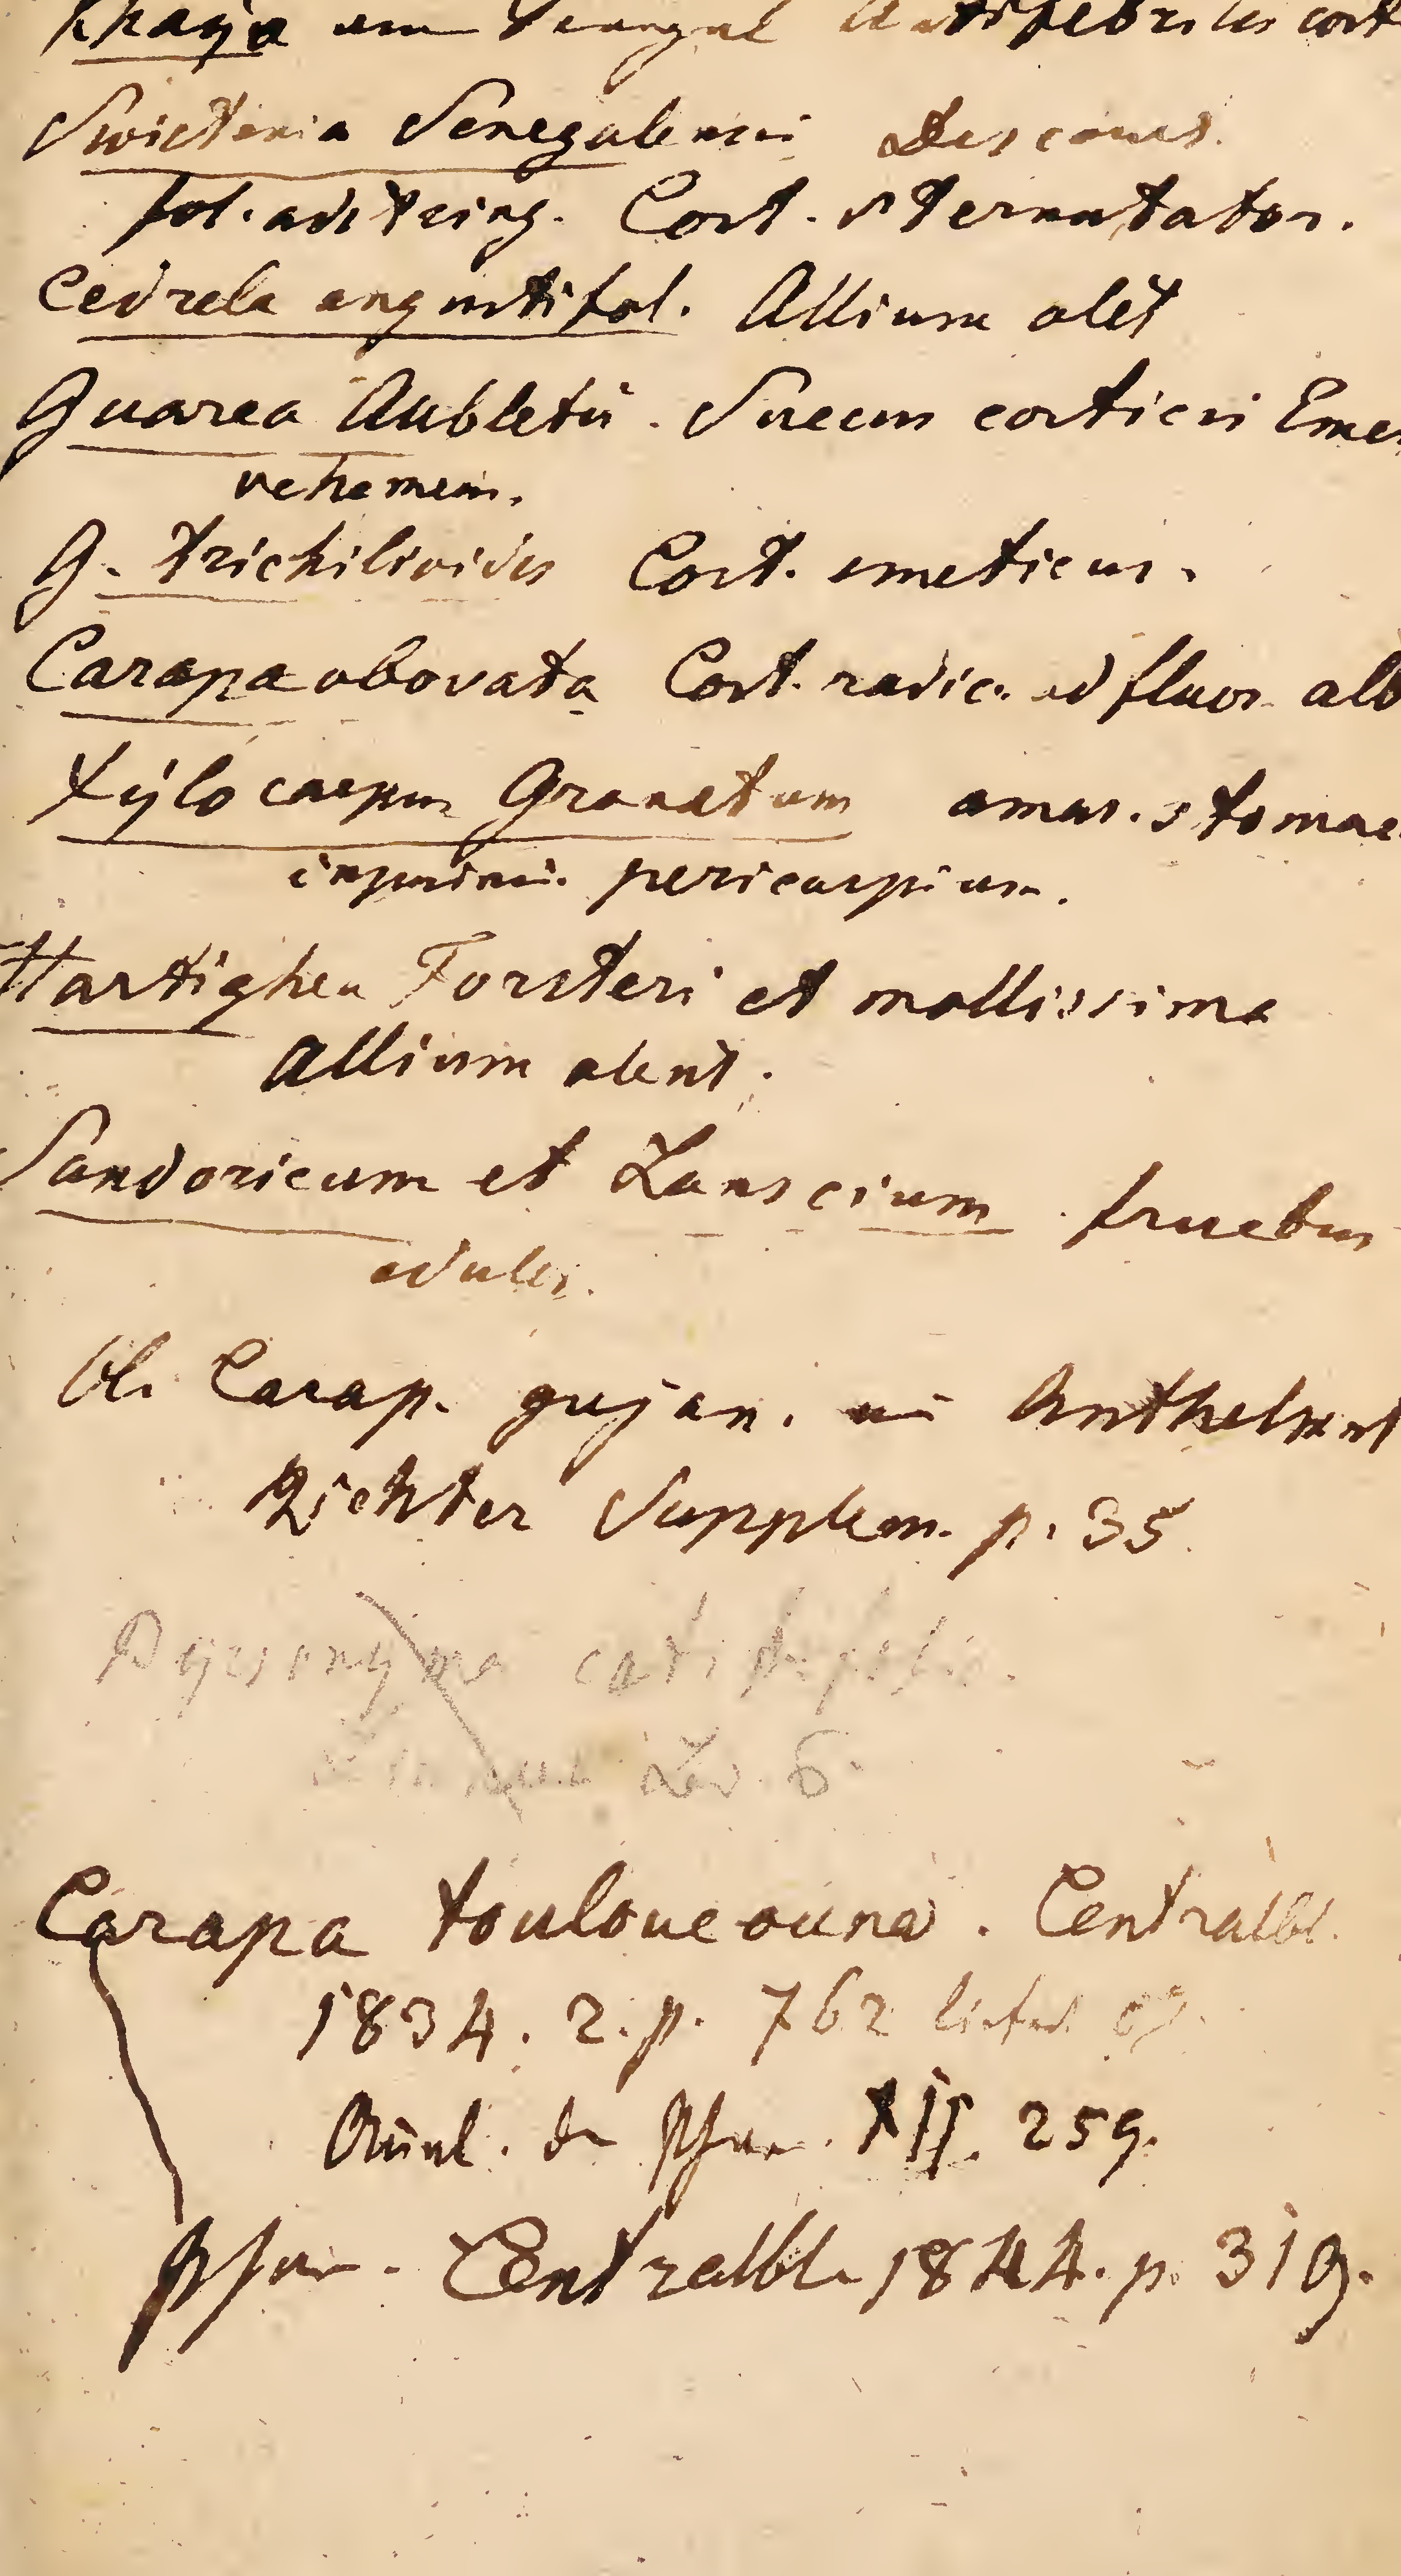 Khaya Antifebriles cort
Swietenia Senegalensis Descourt.
fol. adstring. Cort. sternutator.
Cedrela angustifol. Allium olet
Guarea Aubletii. Succus corticis Eme
vehemens.
G. trichilioides Cort. emeticus.
Carapa obovata Cort. radic. ad fluor. alb
Xylocarpus Granatum amar. stomac
inprimis. pericarpium.
Hartighea Forsteri et mollissima
Allium olent.
Sandoricum et Lanscium fructus
edules.
Ol. Carap. gujan. Anthelmint
Richter Supplem. p. 35.
Carapa touloucouna. Centralbl.
1834. 2. p. 762
XII. 259.
Centralbl. 1844. p. 319.